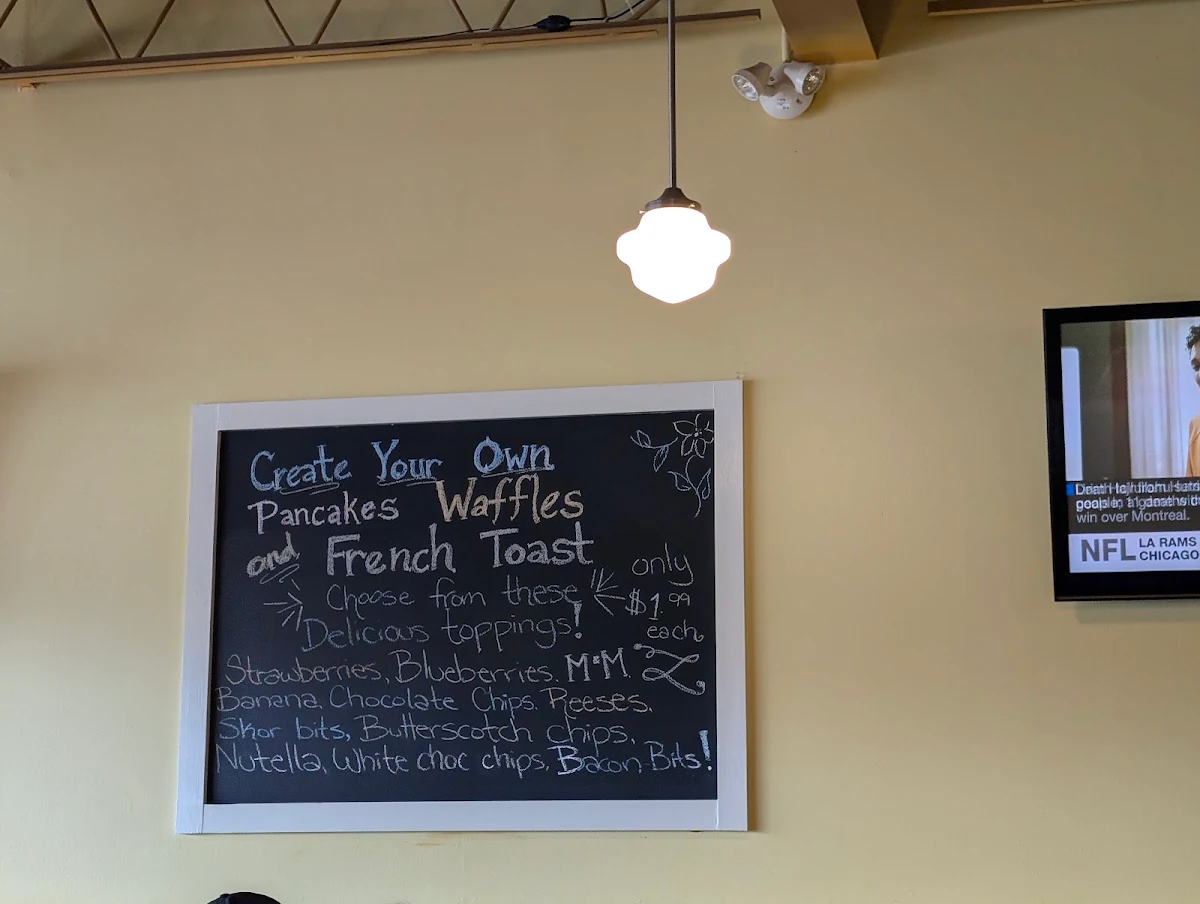 Create Your Own
Pancakes Waffles
and French Toast
Choose from these
Delicious toppings!
only
$1.99
each
Strawberries, Blueberries. M&M.
Banana, Chocolate Chips. Reeses.
Skor bits, Butterscotch chips,
Nutella, White choc chips, Bacon Bits!
win over Montreal.
NFL
LA RAMS
CHICAGO